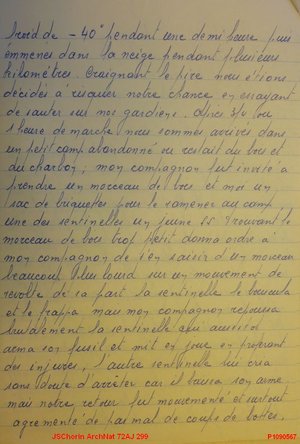 froid de - 40° pendant une demi heure puis
emmenes dans la neige pendant plusieurs
kilomètres. Craignant le pire nous étions
décidés a risquer notre chance en essayant
de sauter sur nos gardiens. Après 3/4 ou
1 heure de marche nous sommes arrivés dans
un petit camp abandonné ou restait du bois et
du charbon ; mon compagnon fut invité a
prendre un morceau de bois et moi un
sac de briquettes pour le ramener au camp
une des sentinelles un jeune SS trouvant le
morceau de bois trop petit donna ordre à
mon compagnon de s'en saisir d'un morceau
beaucoup plus lourd sur un mouvement de
revolte de sa part la sentinelle le bouscula
et le frappa mais mon compagnon repoussa
brutalement la sentinelle qui aussitot
arma son fusil et mit en joue en proferant
des injures, l'autre sentinelle lui cria
sans doute d'arrèter car il baissa son arme
mais notre retour fut mouvementé et surtout
agrementé de pas mal de coups de bottes.
JSChorin ArchNat 72AJ 299
P1090567